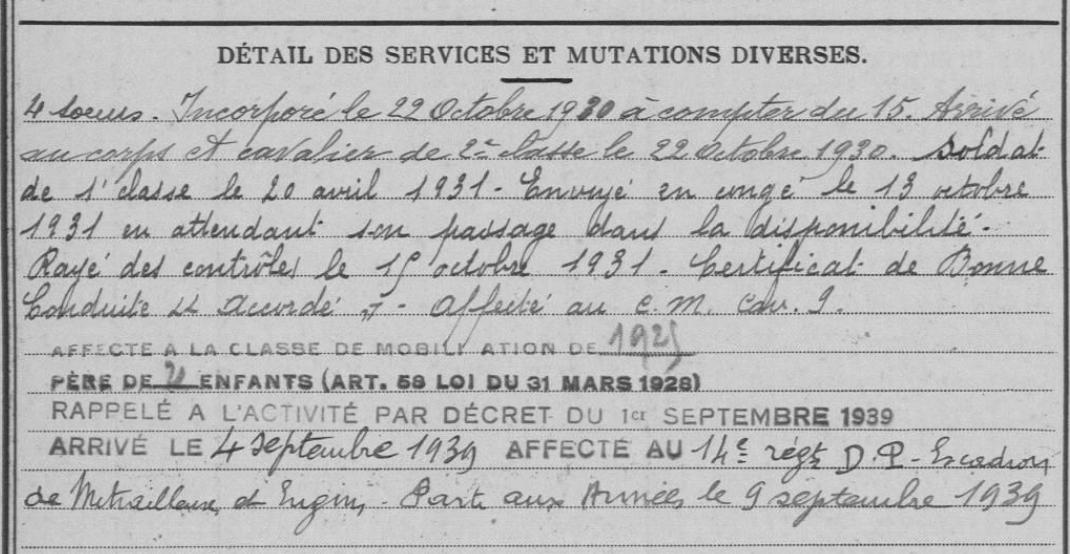 DÉTAIL DES SERVICES ET MUTATIONS DIVERSES.
4 soeurs. Incorporé le 22 Octobre 1930 à compter du 15. Arrivé
au corps et cavalier de 2e classe le 22 Octobre 1930. Soldat
de 1e classe le 20 avril 1931 - Envoyé en congé le 13 octobre
1931 en attendant son passage dans la disponibilité -
Rayé des contrôles le 15 octobre 1931 - Certificat de Bonne
Conduite "Accordé" - Affecté au C. M. Cav. 9.
AFFECTE A LA CLASSE DE MOBILI ATION DE 1925
PÈRE DE 2 ENFANTS (ART. 58 LOI DU 31 MARS 1928)
RAPPELÉ A L'ACTIVITÉ PAR DÉCRET DU 1er SEPTEMBRE 1939
ARRIVÉ LE 4 septembre 1939 AFFECTÉ AU 14e régt D.P - Escadron
de Mitrailleuses et Engins - Parti aux Armées le 9 septembre 1939